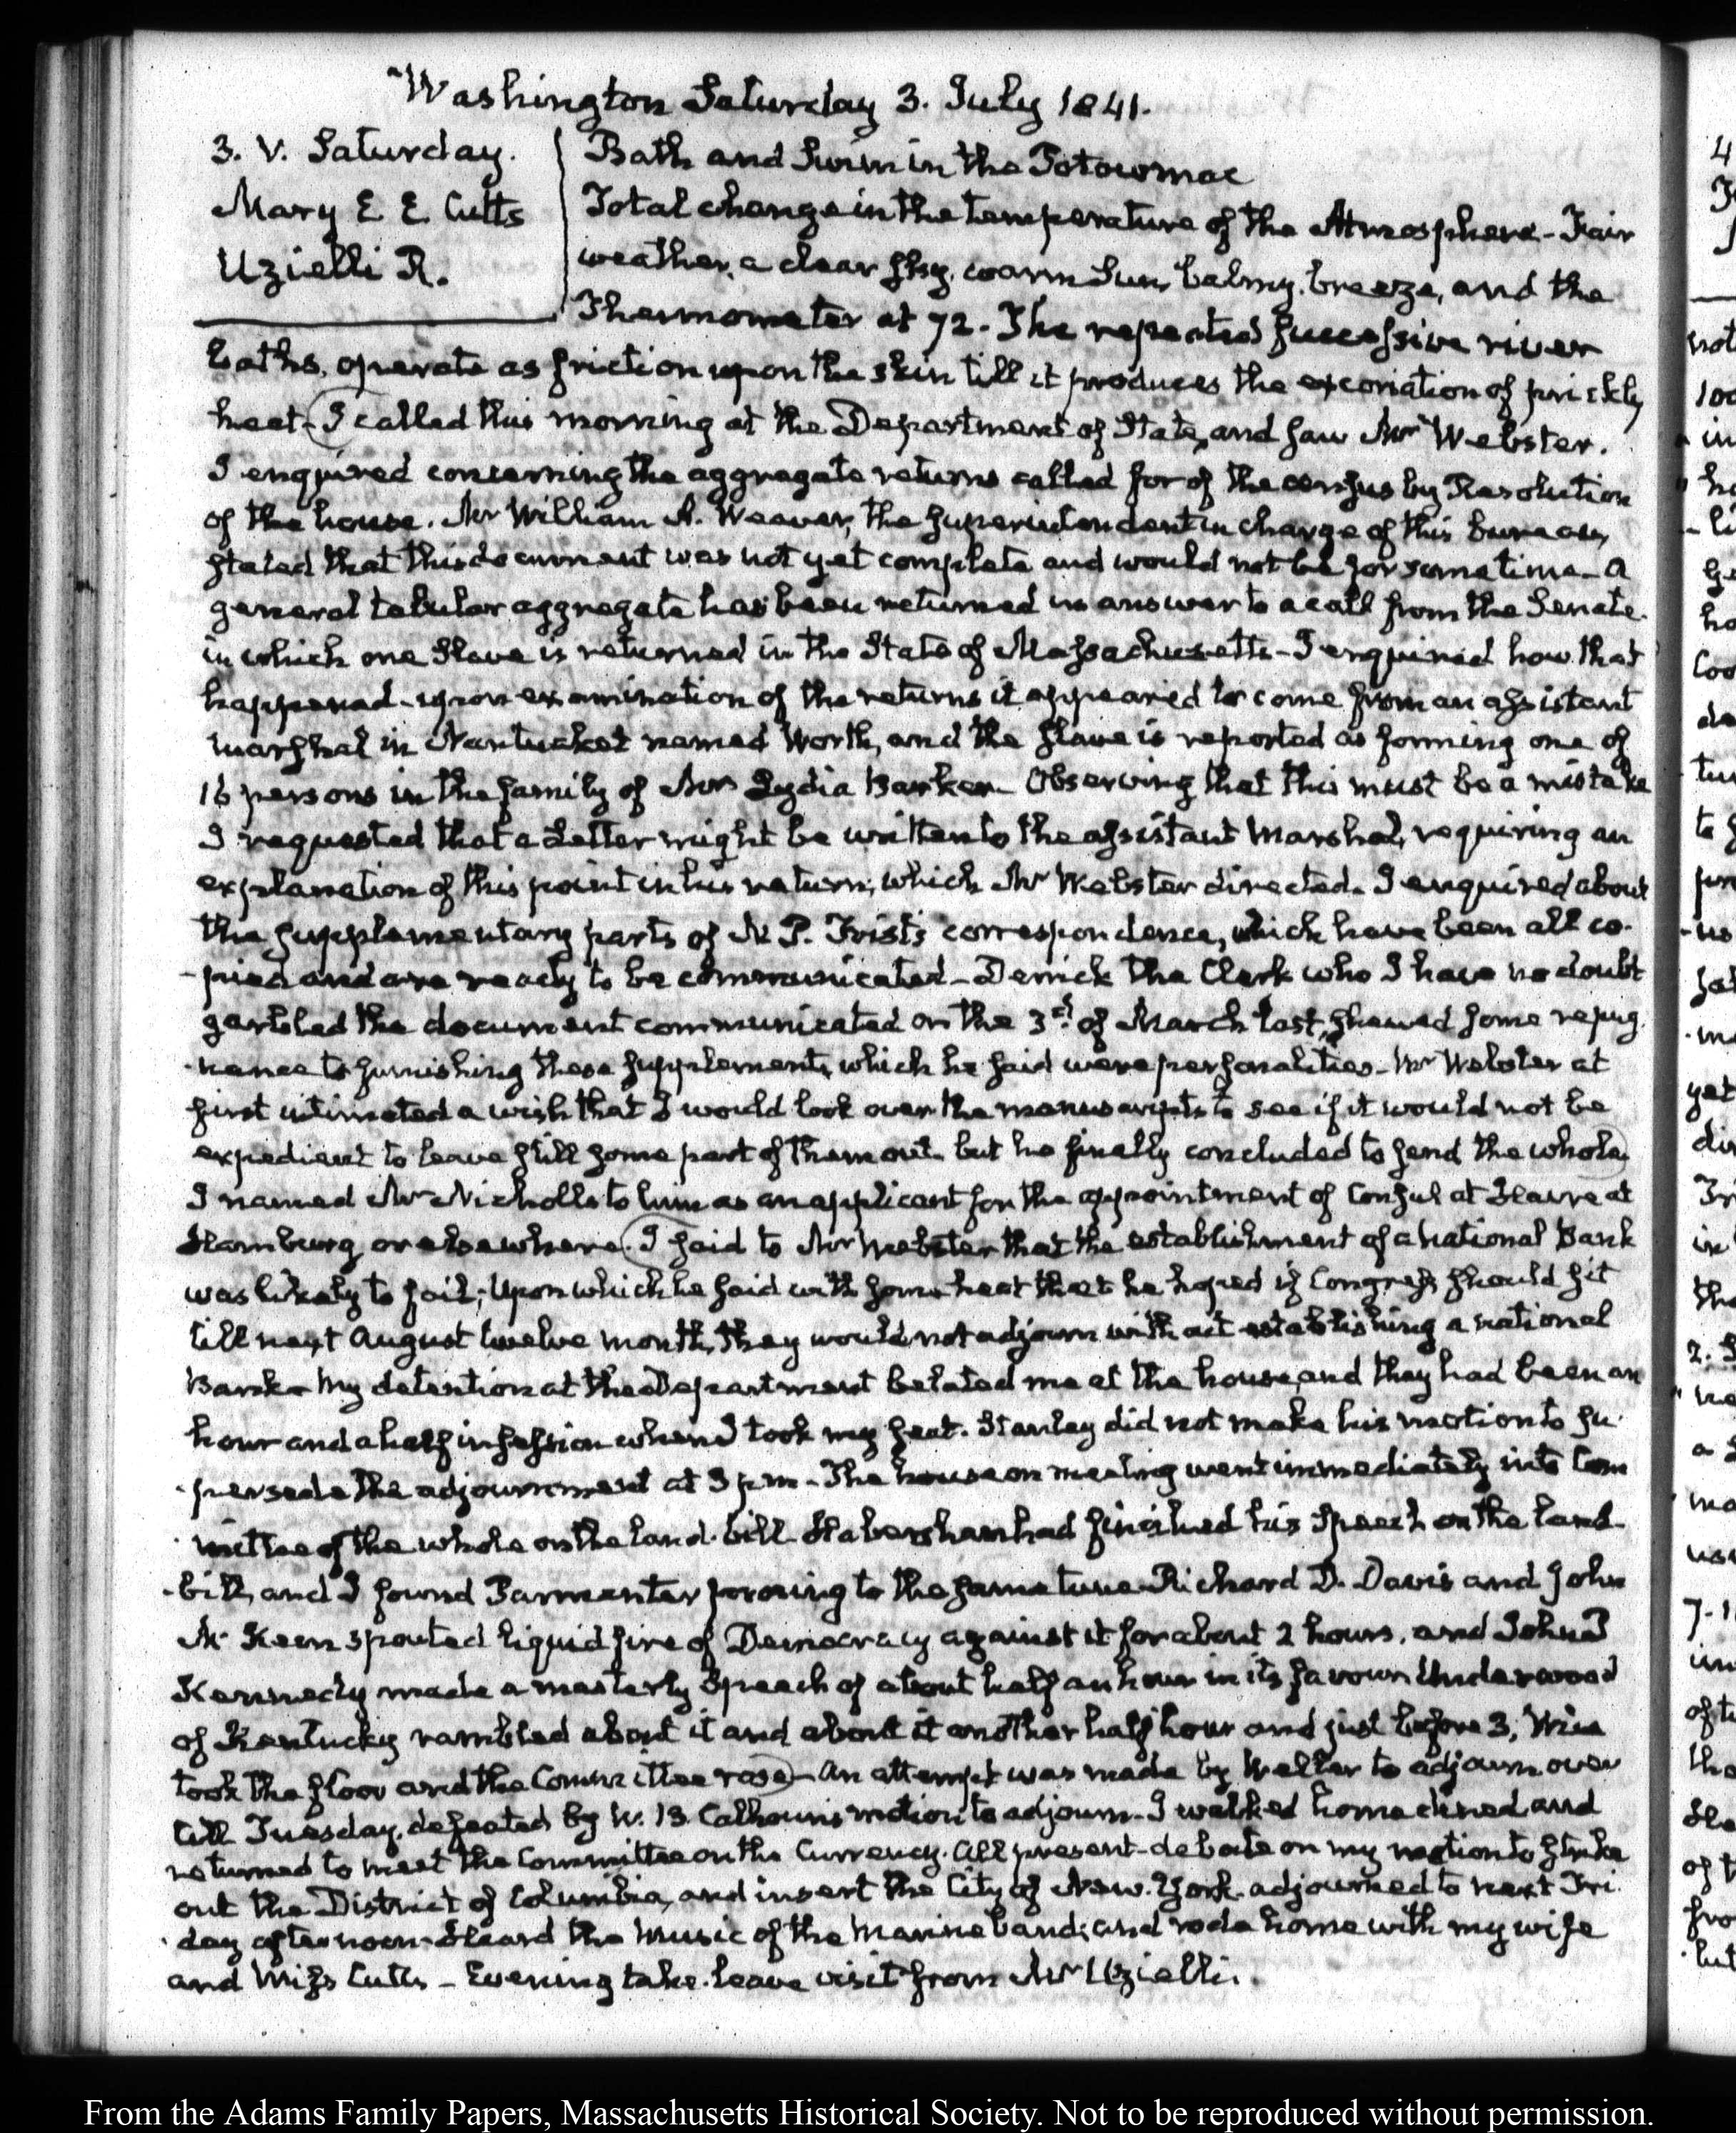 Washington Saturday 3. July 1841.
3. V. Saturday.
Mary E E Cutts
Uzielli R.
Bath and Swim in the Potowmac
Total change in the temperature of the Atmosphere - Fair
weather, a clear sky, warm Sun, balmy breeze, and the
Thermometer at 72. The repeated successive river
baths, operate as friction upon the skin till it produces the excoriation of prickly
heat - I called this morning at the Department of State, and saw Mr Webster.
I enquired concerning the aggregate returns called for of the census by Resolution
of the house. Mr William A. Weaver, the superintendent in charge of this bureau,
stated that this document was not yet complete and would not be for some time - A
general tabular aggregate has been returned in answer to a call from the Senate.
in which one Slave is returned in the State of Massachusetts - I enquired how that
happened - upon examination of the returns it appeared to come from an assistant
marshal in Nantucket named Worth, and the slave is reported as forming one of
16 persons in the family of Mrs Lydia Barker - Observing that this must be a mistake
I requested that a Letter might be written to the assistant Marshal, requiring an
explanation of this point in his return; which Mr Webster directed. I enquired about
the supplementary parts of N. P. Trist's correspondence, which have been all co-
-pied and are ready to be communicated - Derrick the Clerk who I have no doubt
garbled the document communicated on the 3d of March last, shewed some repug
-nance to furnishing these supplements, which he said were personalities - Mr Webster at
first intimated a wish that I would look over the manuscripts to see if it would not be
expedient to leave still some part of them out. but he finally concluded to send the whole
I named Mr Nicholls to him as an applicant for the appointment of Consul at Havre at
Hamburg or elsewhere. I said to Mr Webster that the establishment of a national Bank
was likely to fail; Upon which he said with some heat that he hoped if Congress should sit
till next August twelve month, they would not adjourn without establishing a national
Bank - My detention at the Department belated me at the house, and they had been an
hour and a half in session when I took my seat. Stanley did not make his motion to su-
-persede the adjournment at 3 p.m - The house on meeting went immediately into Com
-mittee of the whole on the land-bill Habersham had finished his Speech on the land-
-bill, and I found Parmenter prosing to the same tune Richard D. Davis and John
Mc Keon spouted liquid fire of Democracy against it for about 2 hours. and John P
Kennedy made a masterly Speech of about half an hour in its favour. Underwood
of Kentucky rambled about it and about it another half hour and just before 3, Wise
took the floor and the Committee rose - An attempt was made by Weller to adjourn over
till Tuesday, defeated by W. B. Calhoun's motion to adjourn - I walked home dined and
returned to meet the Committee on the Currency. All present - debate on my motion to strike
out the District of Columbia, and insert the City of New-York adjourned to next Fri.
-day afternoon - Heard the Music of the Marine band; and rode home with my wife
and Miss Cutts - Evening take-leave visit from Mr Uzielli.
From the Adams Family Papers, Massachusetts Historical Society. Not to be reproduced without permission.